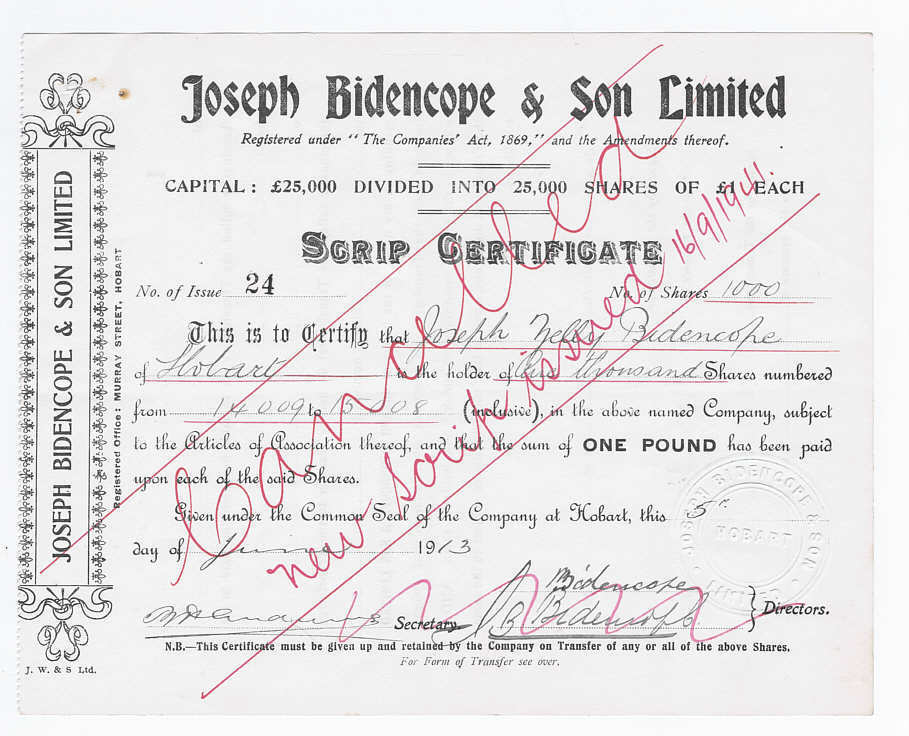 Joseph Bidencope & Son Limited
Registered under "The Companies' Act, 1869," and the Amendments thereof.
CAPITAL: £25,000 DIVIDED INTO 25,000 SHARES OF £1 EACH
SCRIP CERTIFICATE
No. of Issue 24 No. of Shares 1000
This is to Certify that Joseph Bidencope
of Hobart is the holder of One thousand Shares numbered
from 14009 to 15008 (inclusive), in the above named Company, subject
to the Articles of Association thereof, and that the sum of ONE POUND has been paid
upon each of the said Shares.
Given under the Common Seal of the Company at Hobart, this 5th
day of June 1913
Bidencope
Secretary Bidencope Directors.
N.B.—This Certificate must be given up and retained by the Company on Transfer of any or all of the above Shares.
For Form of Transfer see over.
JOSEPH BIDENCOPE & SON LIMITED
Registered Office: MURRAY STREET, HOBART
J. W. & S Ltd.
Cancelled
new scrip issued 16/9/1941.
JOSEPH BIDENCOPE & SON LIMITED
HOBART